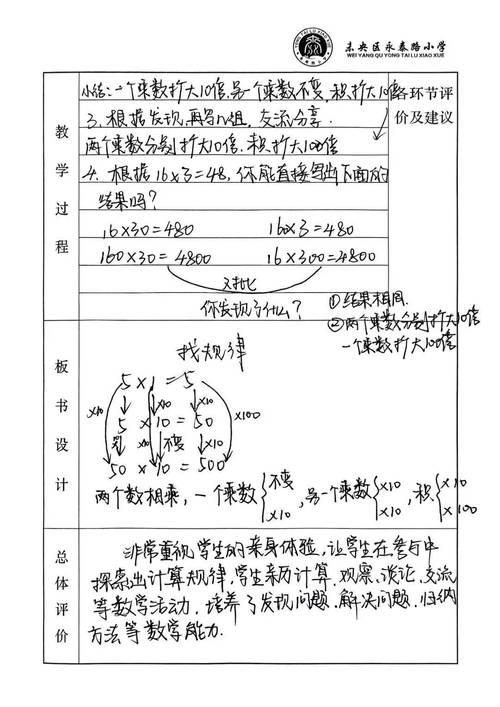 未央区永泰路小学
WEI YANG QU YONG TAI LU XIAO XUE
教学过程
各环节评价及建议
小结:一个乘数扩大10倍,另一个乘数不变,积扩大10倍
3、根据发现,再写几组,交流分享.
两个乘数分别扩大10倍.积扩大100倍
4、根据16×3=48,你能直接写出下面的
结果吗?
16×30=480 160×3=480
160×30=4800 16×300=4800
对比
你发现了什么? ①结果相同.
②两个乘数分别扩大10倍
一个乘数扩大100倍
板书设计
找规律
5×1=5
×10 ↓ ↓×10 ↓×10
5×10=50 ×100
×10 不变 ×10
50×10=500
两个数相乘,一个乘数{不变 ×10,另一个乘数{×10 ×10,积{×10 ×100
总体评价
非常重视学生的亲身体验,让学生在参与中
探索出计算规律,学生亲历计算.观察.谈论.交流
等数学活动,培养了发现问题.解决问题.归纳
方法等数学能力.